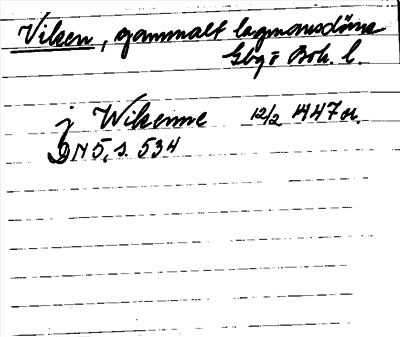 Viken, gammalt lagmansdöme
Gbg o Boh. l.
j Wikenne 12/2 1447 or.
DN 5, s. 534